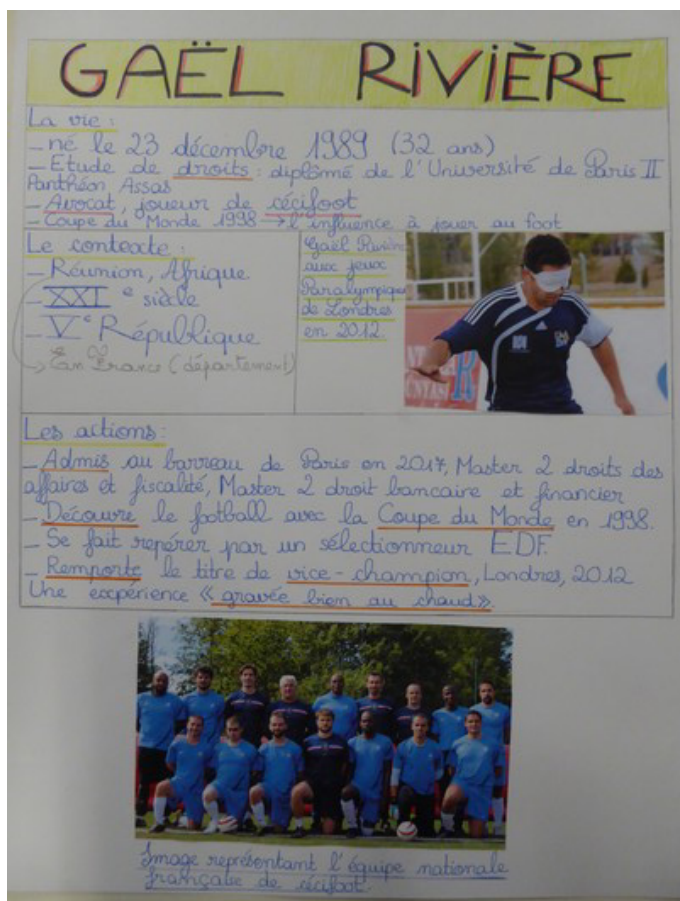 GAËL RIVIÈRE
La vie :
- né le 23 décembre 1989 (32 ans)
- Etude de droits : diplômé de l'Université de Paris II
Panthéon Assas
- Avocat, joueur de cécifoot
- Coupe du Monde 1998 → l'influence à jouer au foot
Le contexte :
- Réunion, Afrique
- XXIe siècle
- Ve République
→ En France (département)
Gaël Rivière
aux jeux
Paralympiques
de Londres
en 2012.
Les actions :
- Admis au barreau de Paris en 2017, Master 2 droits des
affaires et fiscalité, Master 2 droit bancaire et financier
- Découvre le football avec la Coupe du Monde en 1998.
- Se fait repérer par un sélectionneur EDF.
- Remporte le titre de vice-champion, Londres, 2012
Une expérience « gravée bien au chaud ».
Image représentant l'équipe nationale
française de cécifoot.